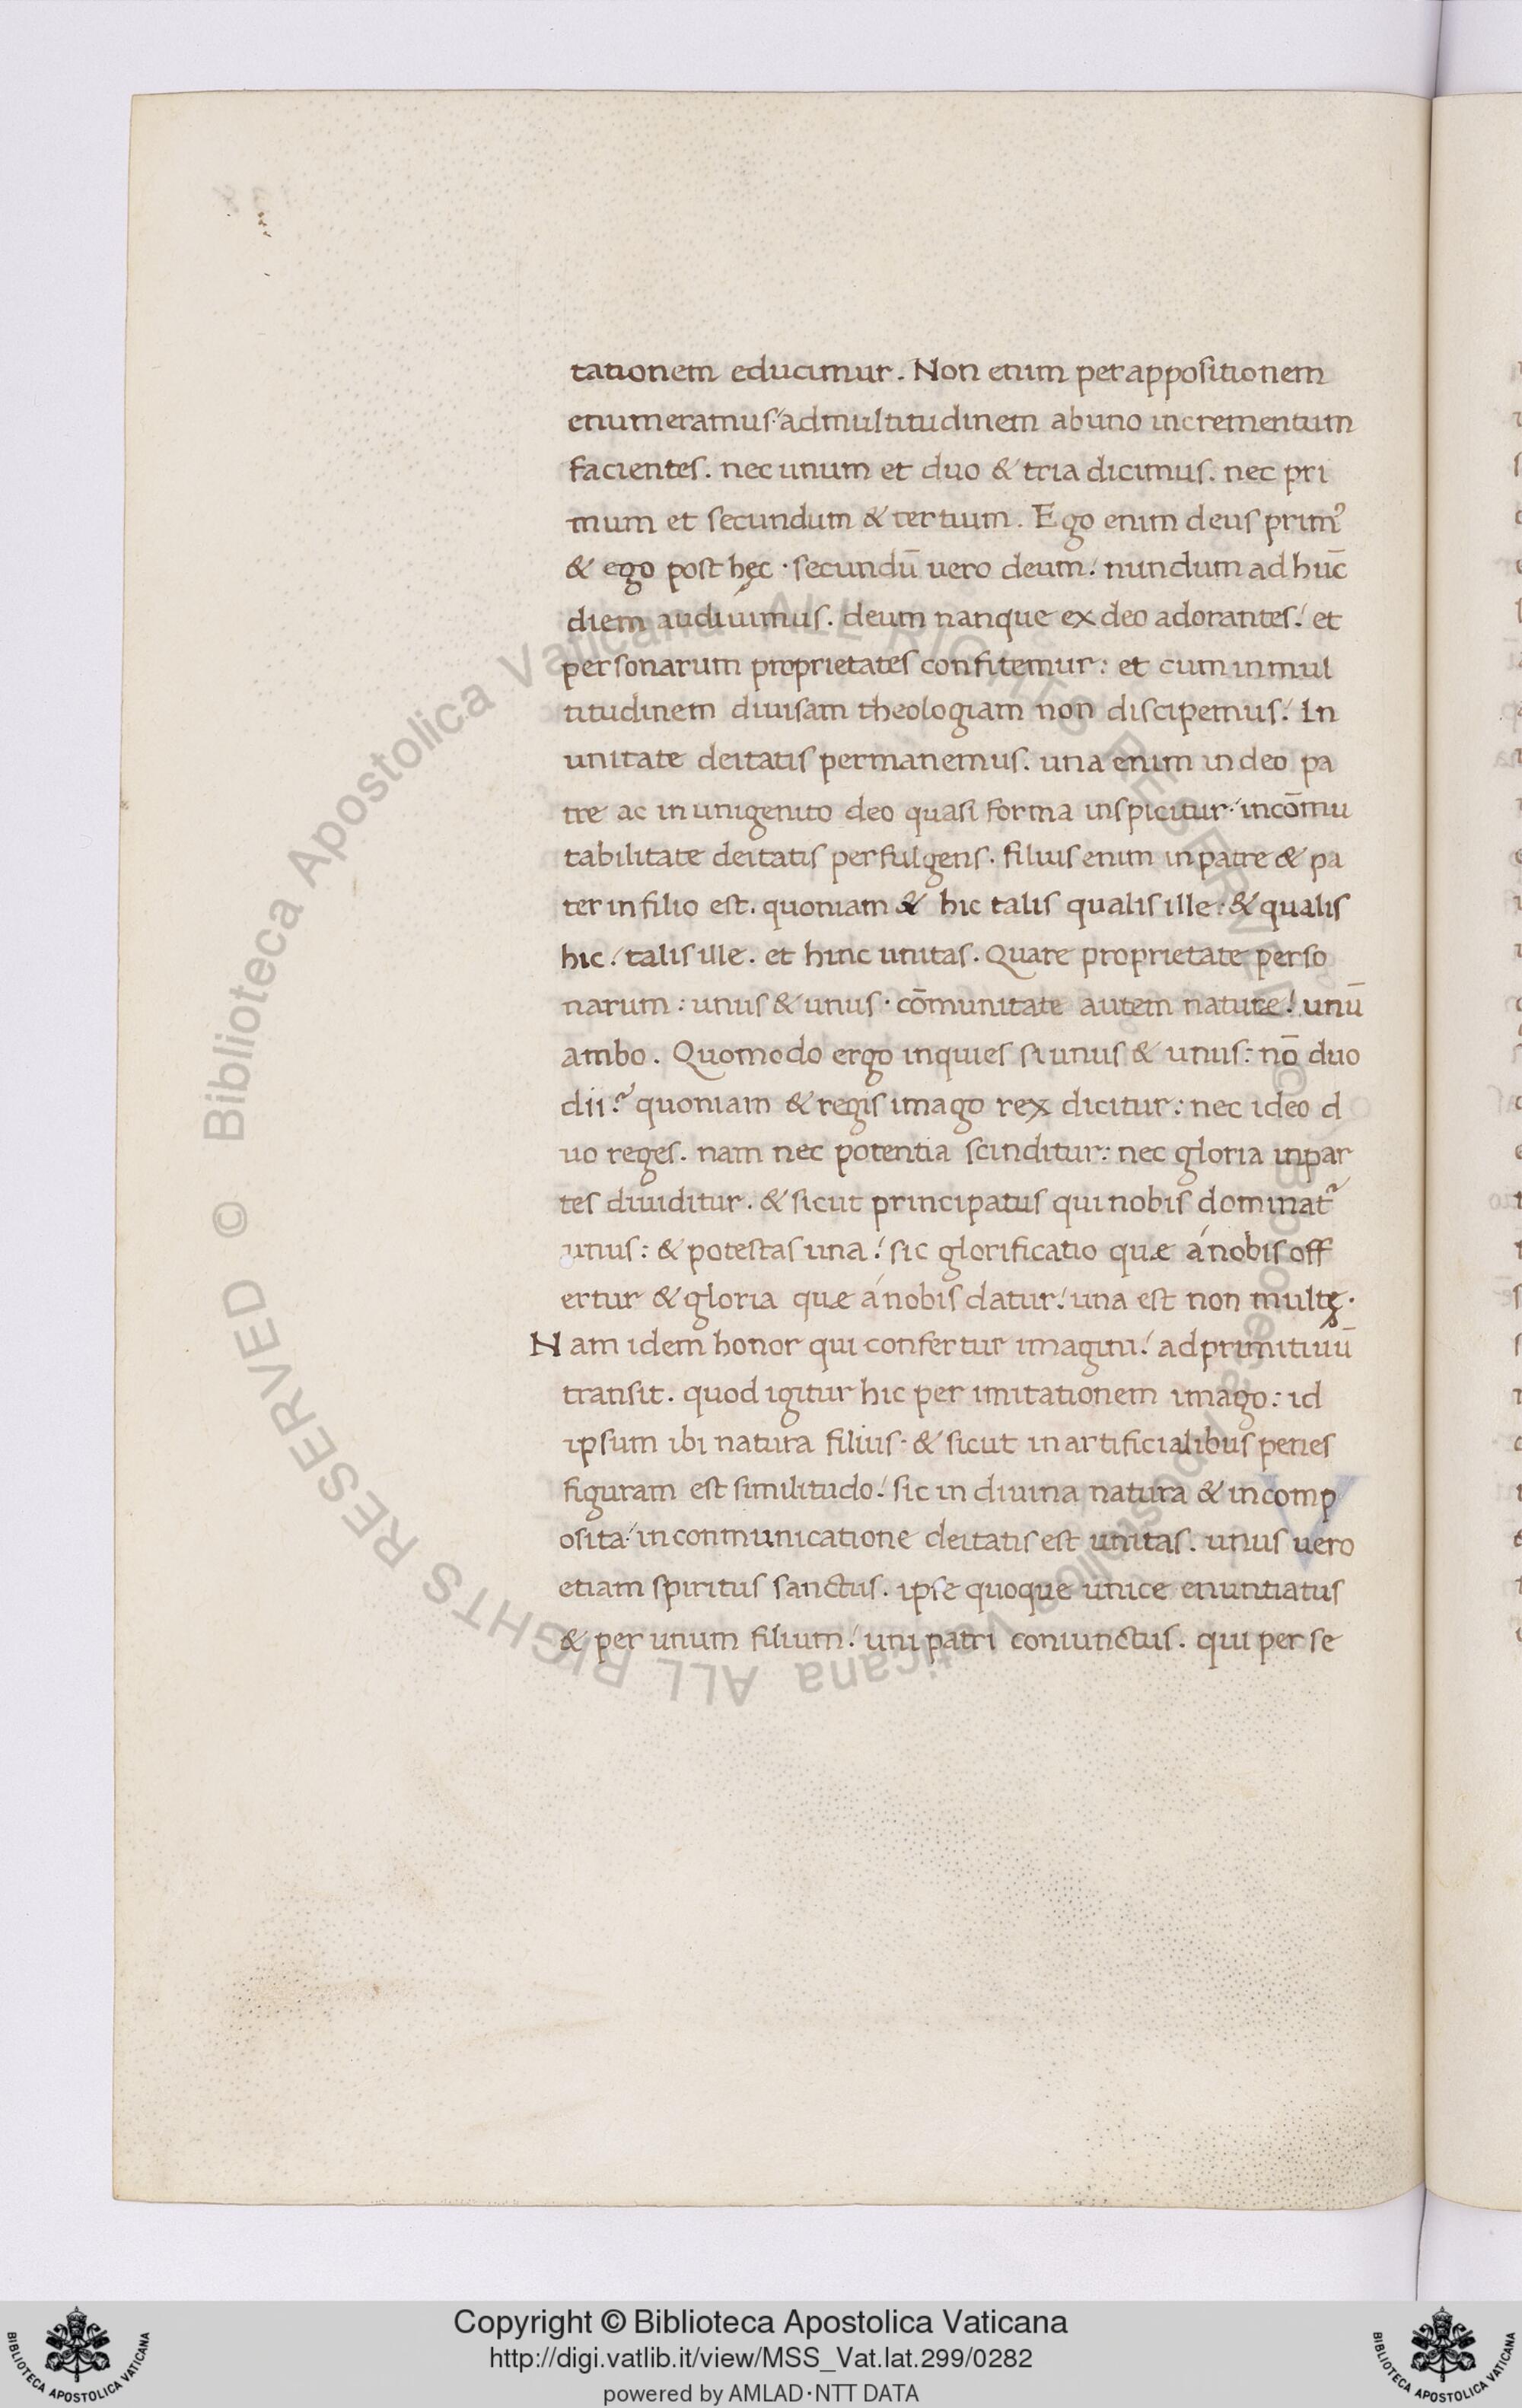 tationem educimur. Non enim per appositionem
enumeramus: ad multitudinem ab uno incrementum
facientes. nec unum et duo & tria dicimus. nec pri
mum et secundum & tertium. Ego enim deus prim᾽
& ego post hęc · secundū uero deum: nundum ad hūc
diem audiuimus. deum nanque ex deo adorantes: et
personarum proprietates confitemur: et cum in mul
titudinem diuisam theologiam non discipemus: In
unitate deitatis permanemus. una enim in deo pa
tre ac in unigenito deo quasi forma inspicitur: incōmu
tabilitate deitatis perfulgens. filius enim in patre & pa
ter in filio est. quoniam & hic talis qualis ille: & qualis
hic: talis ille. et hinc unitas. Quare proprietate perso
narum: unus & unus · cōmunitate autem nature: unū
ambo. Quomodo ergo inquies si unus & unus: nō duo
dii? quoniam & regis imago rex dicitur: nec ideo d
uo reges. nam nec potentia scinditur: nec gloria in par
tes diuiditur. & sicut principatus qui nobis dominat᾽
unus: & potestas una: sic glorificatio quæ á nobis off
ertur & gloria quæ á nobis datur: una est non multę.
Nam idem honor qui confertur imagini: ad primitiuū
transit. quod igitur hic per imitationem imago: id
ipsum ibi natura filius · & sicut in artificialibus penes
figuram est similitudo: sic in diuina natura & incomp
osita: in conmunicatione deitatis est unitas. unus uero
etiam spiritus sanctus. ipse quoque unice enuntiatus
& per unum filium: uni patri coniunctus. qui per se
© Biblioteca Apostolica Vaticana ALL RIGHTS RESERVED
© Biblioteca Apostolica Vaticana ALL RIGHTS RESERVED
Copyright © Biblioteca Apostolica Vaticana
http://digi.vatlib.it/view/MSS_Vat.lat.299/0282
powered by AMLAD·NTT DATA
BIBLIOTECA APOSTOLICA VATICANA
BIBLIOTECA APOSTOLICA VATICANA